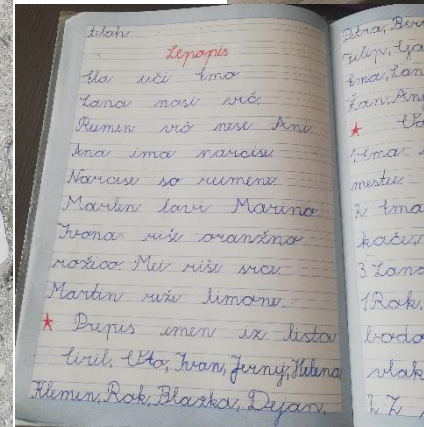 Lepopis
Ula uči Ema
Lana nosi vrč.
Rumen vrč nese Ani.
Ana ima narcise.
Narcise so rumene.
Marlen lovi Marino.
Ivana riše oranžno
rožico. Mei riše srce.
Martin riže limone.
Prepis imen iz lista
Ciril, Uta, Ivan, Jernej, Helena,
Klemen, Rok, Blažka, Dejan,
Petra, Ber
Filip, Ga
Ema, Lan
Žan, An
1. Ema
mestu
2. Ema
kače,
3. Lana
1. Rok,
vlak